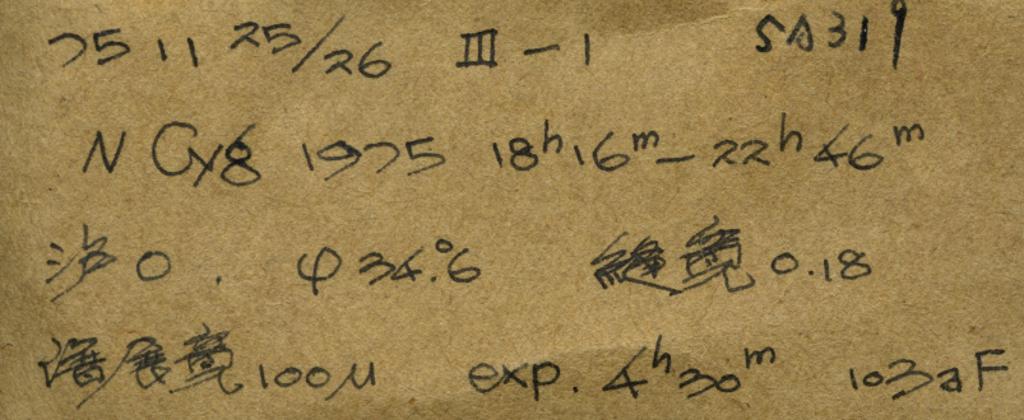 75 11 25/26 III-1 SA319
N Cyg 1975 18h16m-22h46m
沪0. φ34.°6 缝宽0.18
谱展宽100μ exp. 4h30m 103aF